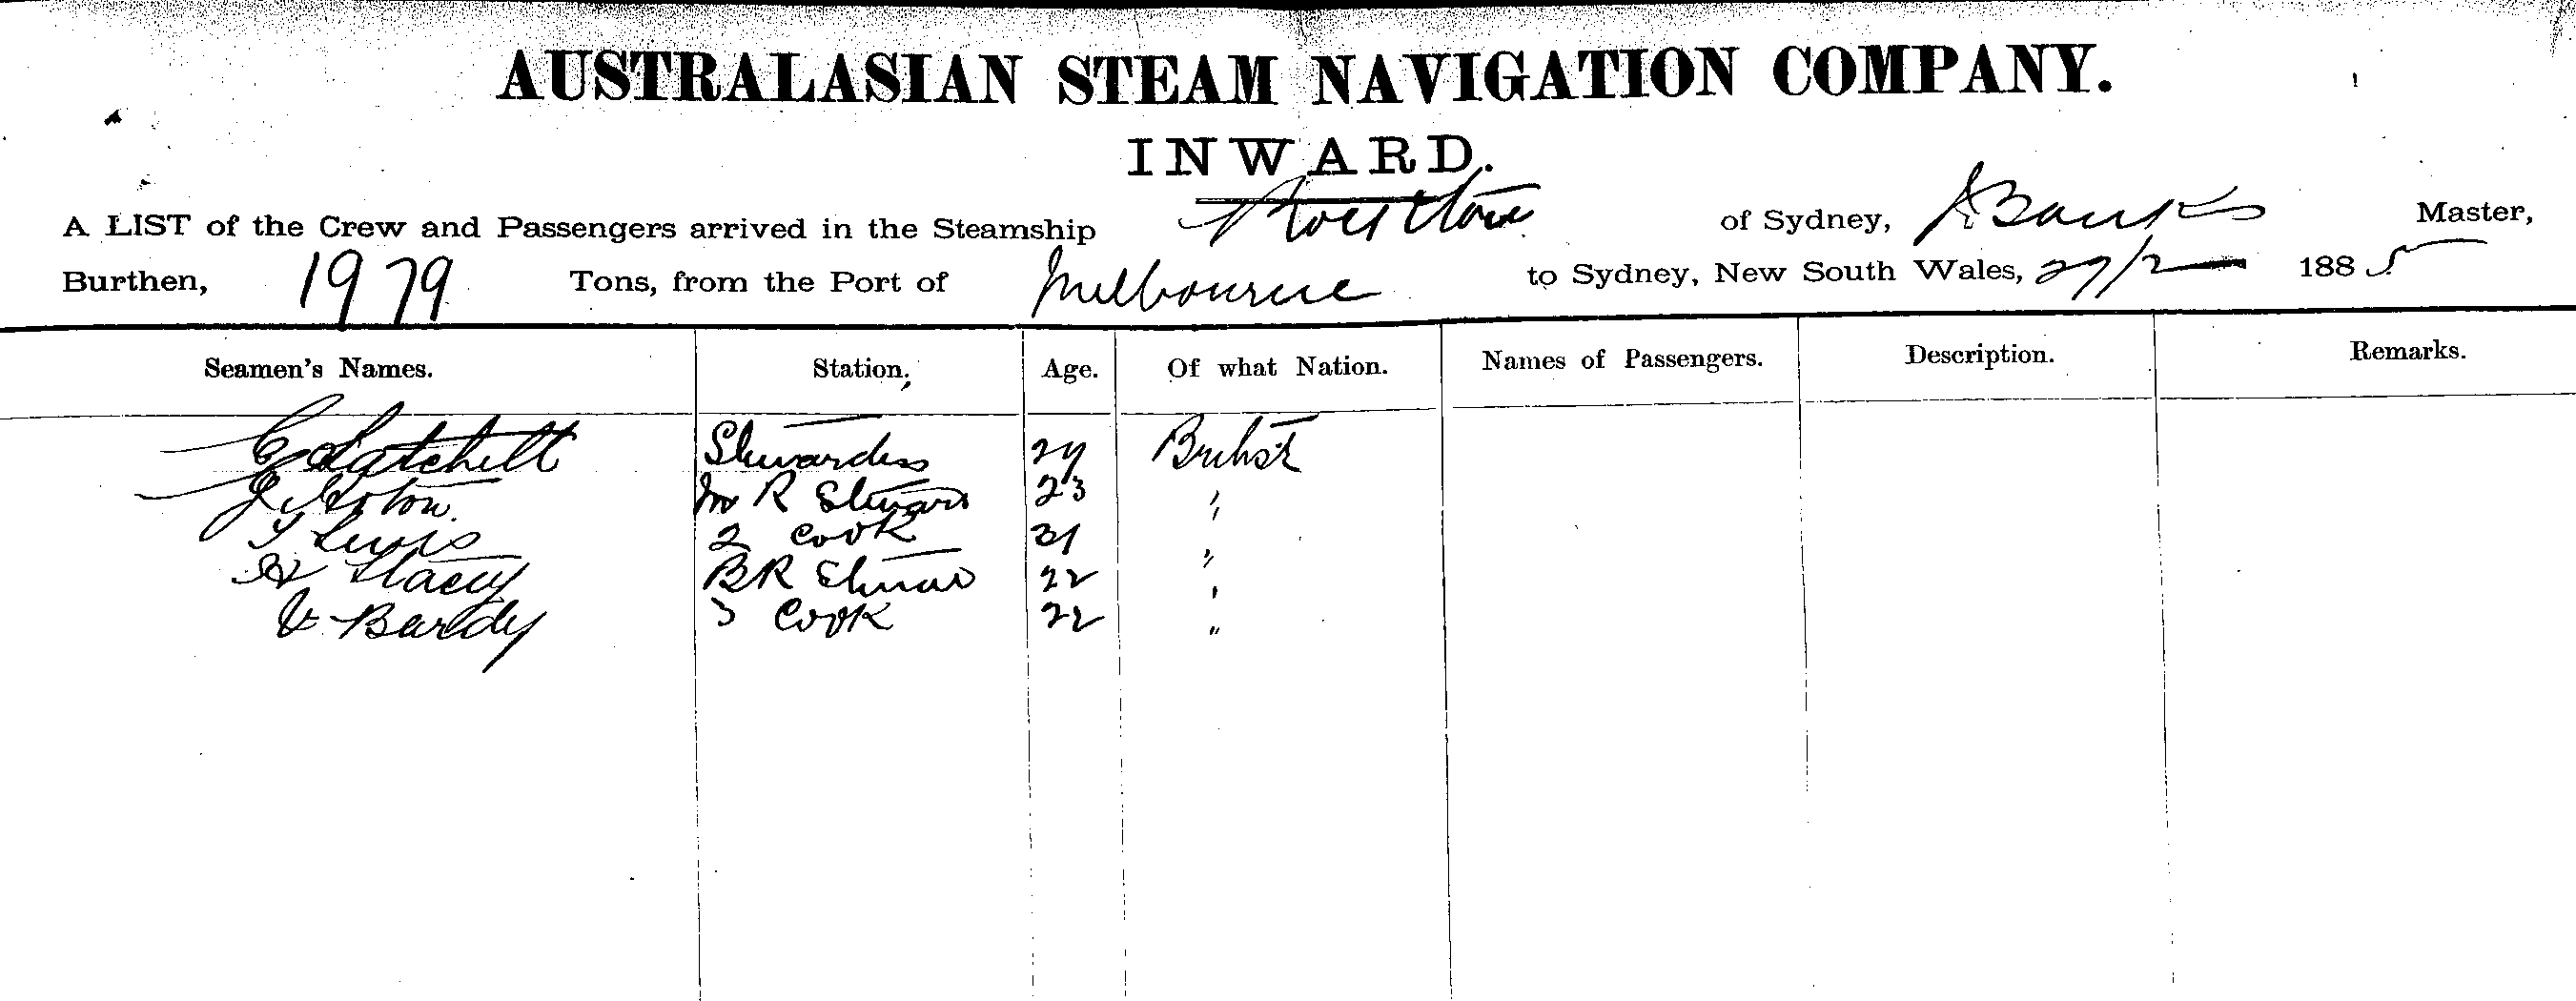 AUSTRALASIAN STEAM NAVIGATION COMPANY.
INWARD.
A LIST of the Crew and Passengers arrived in the Steamship of Sydney, J Banks Master,
Burthen, 1979 Tons, from the Port of Melbourne to Sydney, New South Wales, 27/2 1885
Seamen's Names. Station, Age. Of what Nation. Names of Passengers. Description. Remarks.
Stewardess British
J R Steward 23 "
Lewis 2 Cook 31 "
H Stacey BR Steward 22 "
V Bardy 3 Cook 22 "